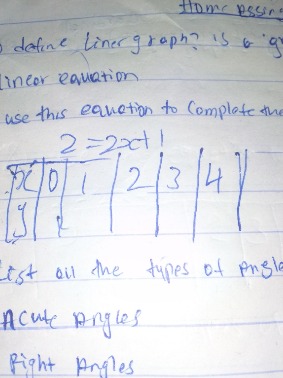 Home Assin
define Liner graph? is a gr
linear equation
use this equation to Complete the
2 = 2x+1
x 0 1 2 3 4
y
List all the types of Angle
Acute Angles
Right Angles